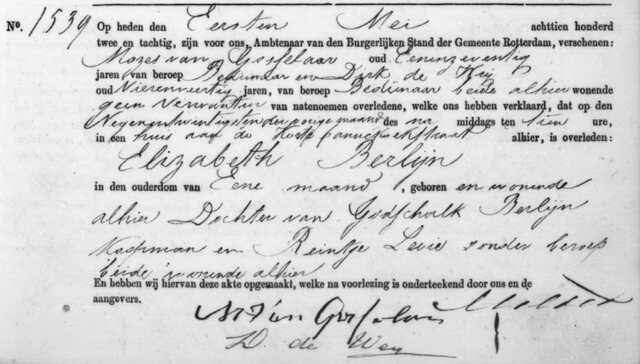 No. 1539 Op heden den Eersten Mei achttien honderd
twee en tachtig, zijn voor ons, Ambtenaar van den Burgerlijken Stand der Gemeente Rotterdam, verschenen:
Mozes van Gosselaar oud Eenenzeventig
jaren van beroep Bedienaar en Dirk de Wey
oud Vierenveertig jaren, van beroep Bedienaar beide alhier wonende
geen Verwanten van natenoemen overledene, welke ons hebben verklaard, dat op den
Negenentwintigsten der vorige maand des na middags ten tien ure,
in een huis aan de alhier, is overleden:
Elizabeth Berlijn
in den ouderdom van Eene maand, geboren en wonende
alhier Dochter van Godschalk Berlijn
Koopman en Reintje Levie zonder beroep
beide wonende alhier
En hebben wij hiervan deze akte opgemaakt, welke na voorlezing is onderteekend door ons en de
aangevers.
D. de Wey